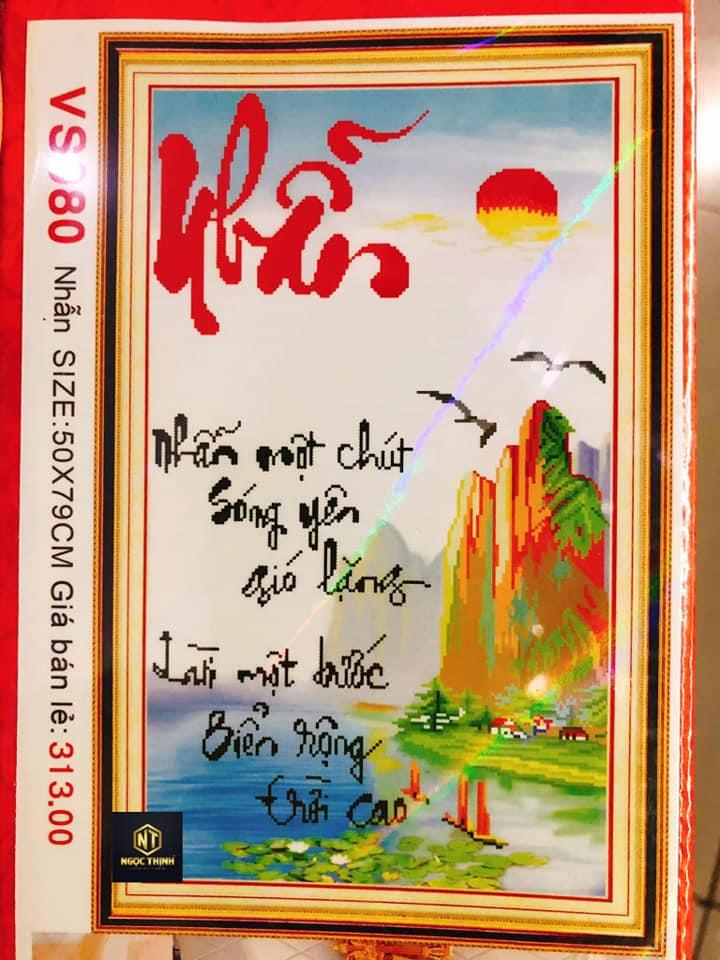 Nhẫn
Nhẫn một chút
Sóng yên
gió lặng
Lùi một bước
Biển rộng
trời cao
VS080 Nhẫn SIZE:50X79CM Giá bán lẻ: 313.00
NT
NGỌC THỊNH